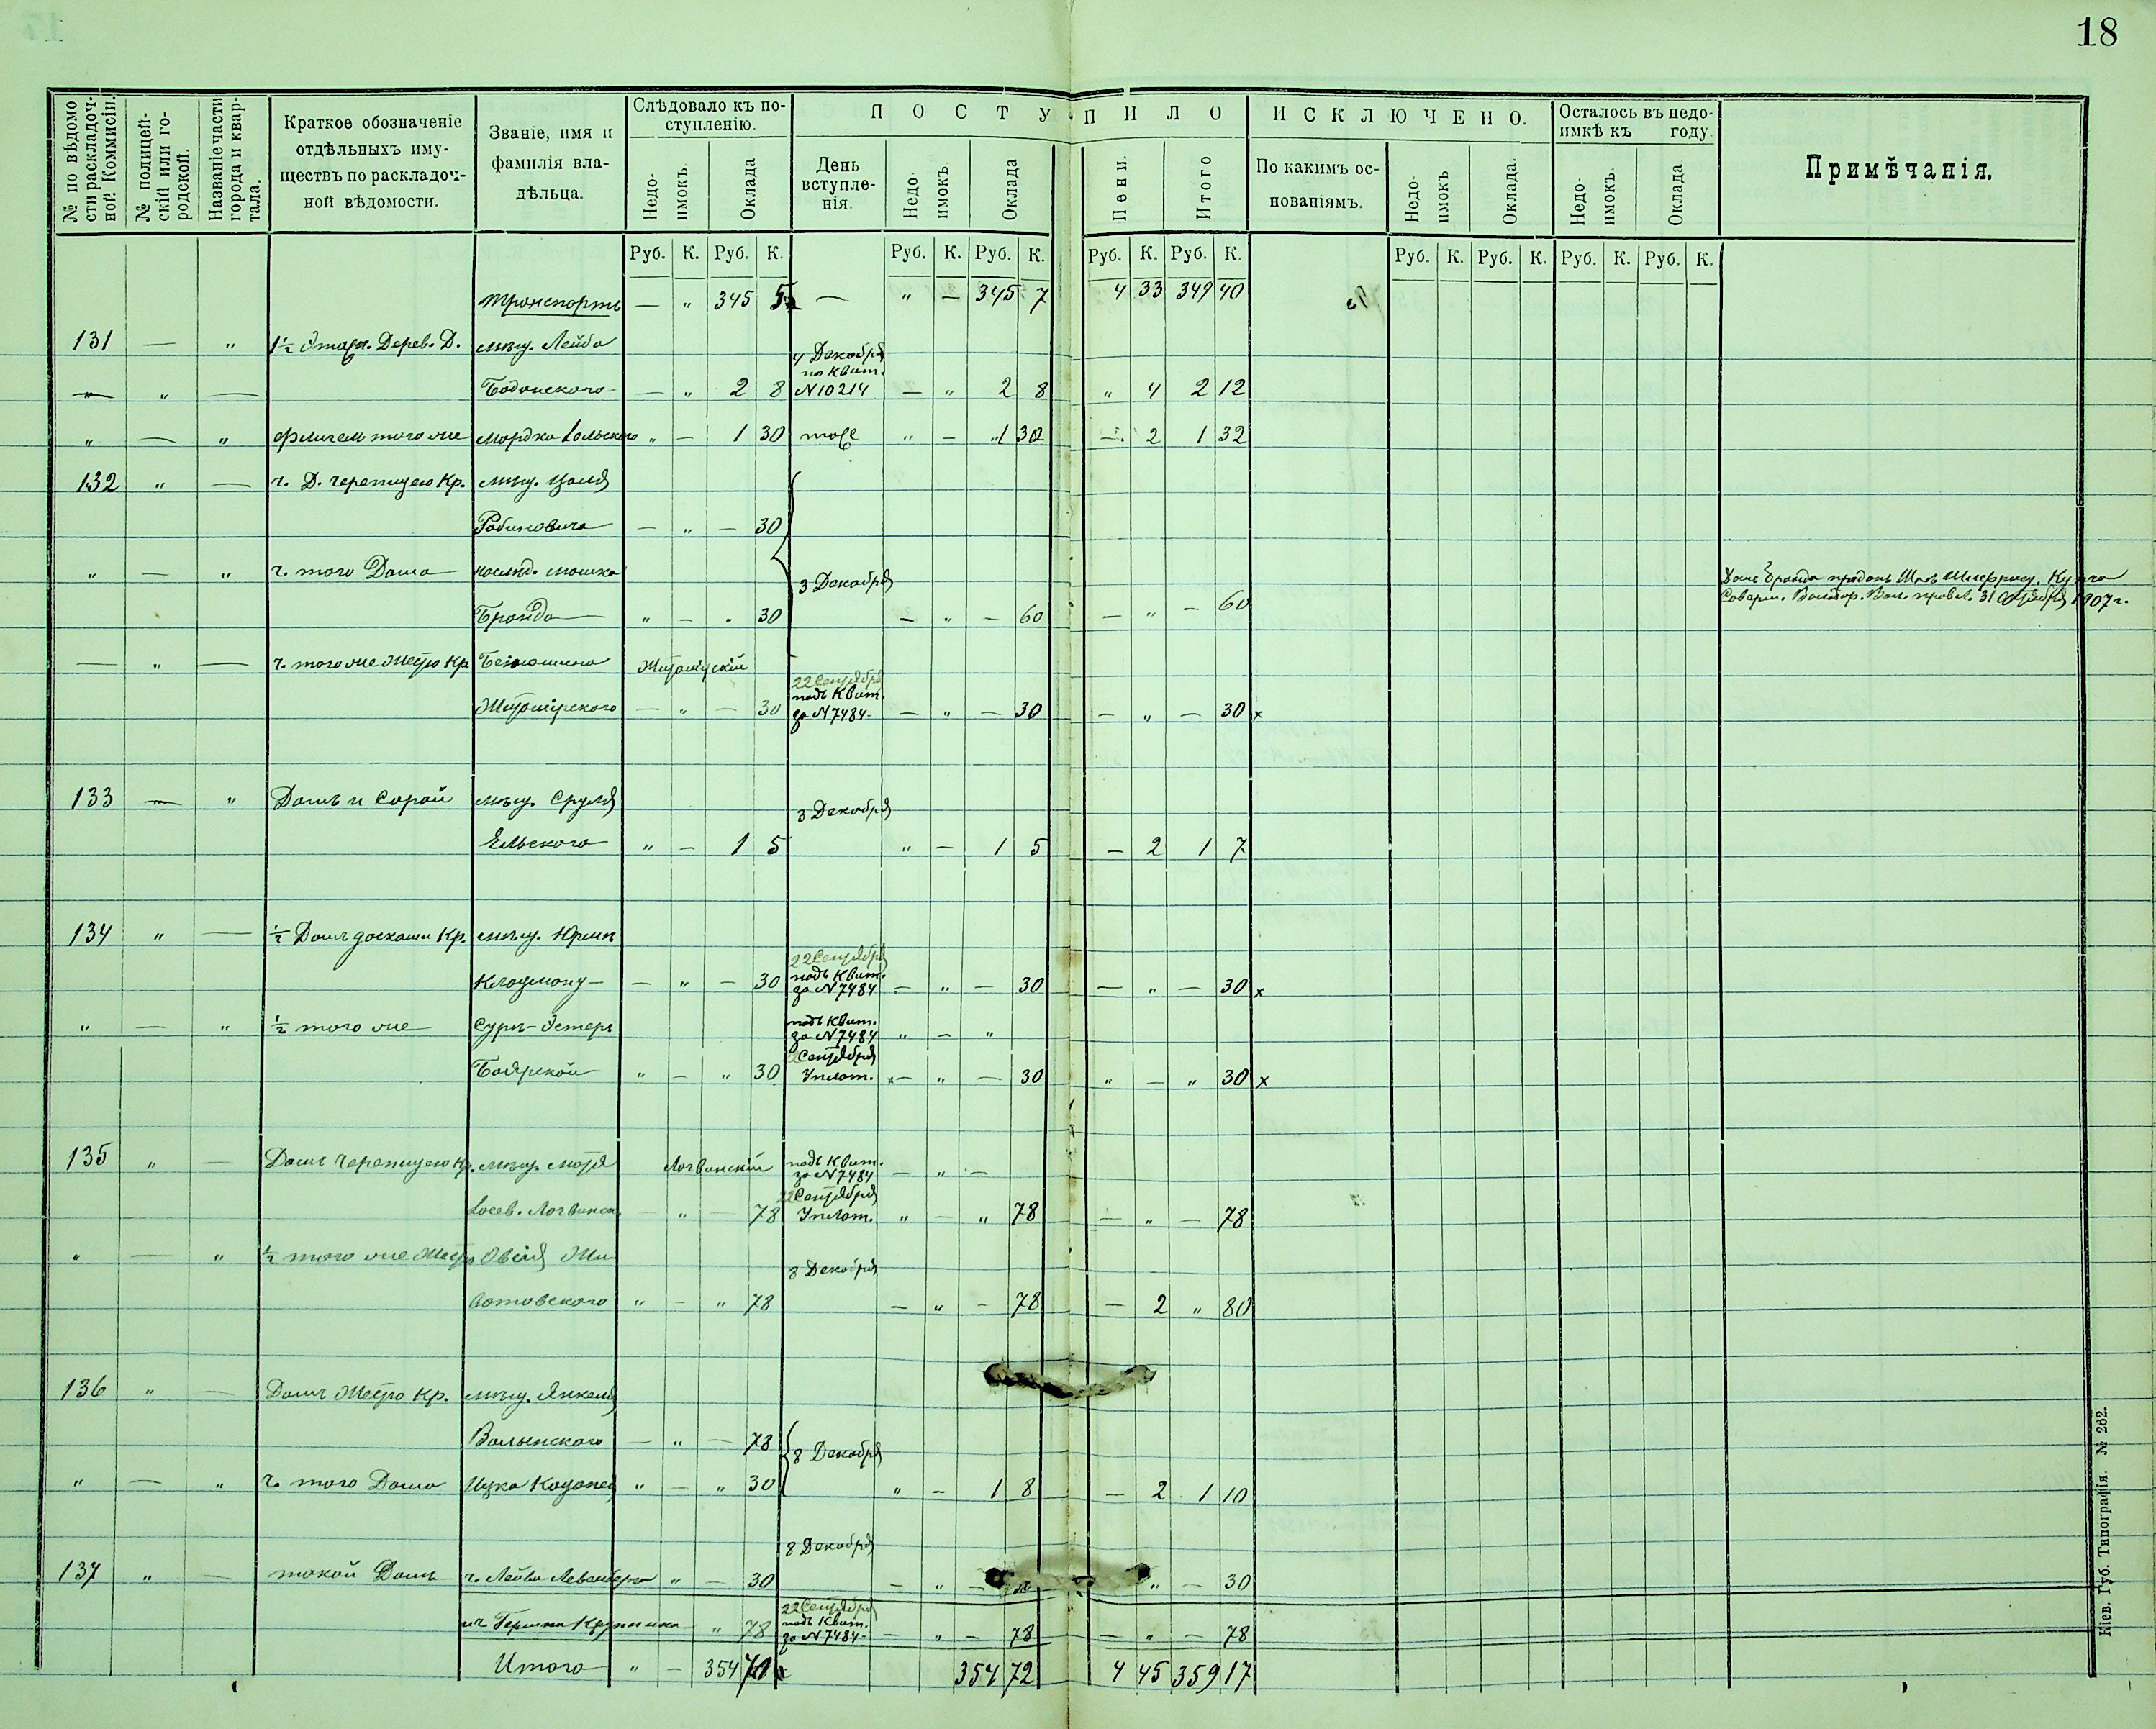 18
№ по вѣдомости раскладочной Коммисіи.
№ полицейскій или городской.
Названіе части города и квартала.
Краткое обозначеніе отдѣльныхъ имуществъ по раскладочной вѣдомости.
Званіе, имя и фамилія владѣльца.
Слѣдовало къ поступленію.
Недоимокъ. Оклада
П О С Т У П И Л О
День вступленія. Недоимокъ. Оклада Пени. Итого
И С К Л Ю Ч Е Н О.
По какимъ основаніямъ. Недоимокъ Оклада.
Осталось въ недоимкѣ къ году.
Недоимокъ. Оклада
Примѣчанія.
Руб. К. Руб. К. Руб. К. Руб. К. Руб. К. Руб. К. Руб. К. Руб. К. Руб. К. Руб. К.
Транспортъ — " 345 — " — 345 7 4 33 349 40
131 — " 1½ Этаж. Дерев. Д. мѣщ. Лейба
4 Декабря
по Квит.
— " — — " 2 8 N 10214 — " 2 8 " 4 2 12
" — " флигель того же Мордка " — 1 30 тоже " — " 1 30 — 2 1 32
132 " — ч. Д. черепицею Кр. мѣщ.
Рабиновича — " — 30
" — " ч. того Дома наслѣд. Мошка 3 Декабря
Бранда " — " 30 — " — 60 — " — 60
31 1907 г.
— " — ч. того же Жестью Кр. Житомірскій
22 Сентября
подъ Квит.
Житомірского — " — 30 за N 7484 — " — 30 — " — 30 x
133 — " Домъ и Сарай мѣщ. Сруля 3 Декабря
Ельского " — 1 5 " — 1 5 — 2 1 7
134 " — ½ Домъ досками Кр. мѣщ.
22 Сентября
подъ Квит.
— " — 30 за N 7484 — " — 30 — " — 30 x
" — " ½ того же Суры-Эстеры подъ Квит.
за N 7484 " — "
22 Сентября
Боярской " — " 30 Уплат. — " — 30 " — " 30 x
135 " — Домъ черепицею Кр. мѣщ. Мотя Логвинскій подъ Квит.
за N 7484 — " —
22 Сентября
Логвинск. — " — 78 Уплат. " — " 78 — " — 78
" — " ½ того же Жестью Овсія Жи-
8 Декабря
вотовского " — " 78 — " — 78 — 2 " 80
136 " — Домъ Жестью Кр. мѣщ. Янкеля
Волынского — " — 78 8 Декабря
" — " ч. того Дома Ицка " — " 30 " — 1 8 — 2 1 10
8 Декабря
137 " — такой Домъ ч. Лейба " — 30 — " — " — 30
22 Сентября
подъ Квит.
Гершка " 78 за N 7484 — " — 78 — " — 78
Итого " — 354 354 72 4 45 359 17
Кіев. Губ. Типографія. № 262.